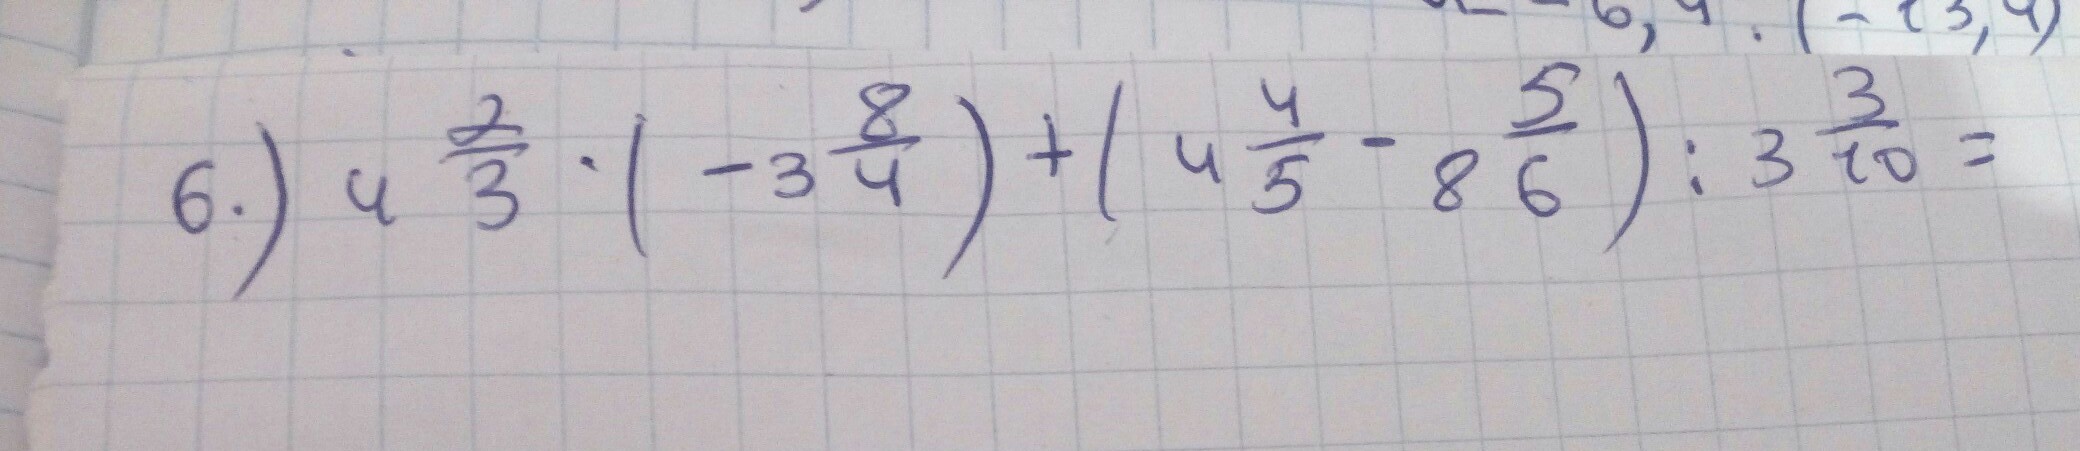 - 6,4 · (-13,4)
6.) 4 2/3 · (-3 8/4) + (4 4/5 - 8 5/6) : 3 3/10 =